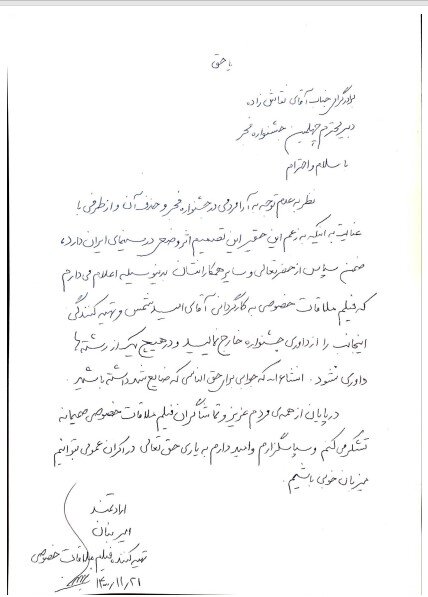 یا حق
برادر گرامی جناب آقای نقاش زاده
دبیر محترم چهلمین جشنواره فجر
با سلام و احترام
نظر به عدم توجه به آراء مردمی در جشنواره فجر و حذف آن و از طرفی با
عنایت به اینکه به زعم این حقیر این تصمیم اثر وضعی در سینمای ایران دارد،
ضمن سپاس از حضرتعالی و سایر همکارانتان بدینوسیله اعلام می دارم
که فیلم ملاقات خصوصی به کارگردانی آقای امید شمس و تهیه کنندگی
اینجانب را از داوری جشنواره خارج نمائید و در هیچ یک از رشته ها
داوری نشود. انشاءاله که جوابی برای حق الناسی که ضایع شد داشته باشید.
در پایان از همه ی مردم عزیز و تماشاگران فیلم ملاقات خصوصی صمیمانه
تشکر می کنم و سپاسگزارم و امید دارم به یاری حق تعالی در اکران عمومی بتوانیم
میزبان خوبی باشیم.
ارادتمند
امیر بنان
تهیه کننده فیلم ملاقات خصوصی
۱۴۰۰/۱۱/۲۱